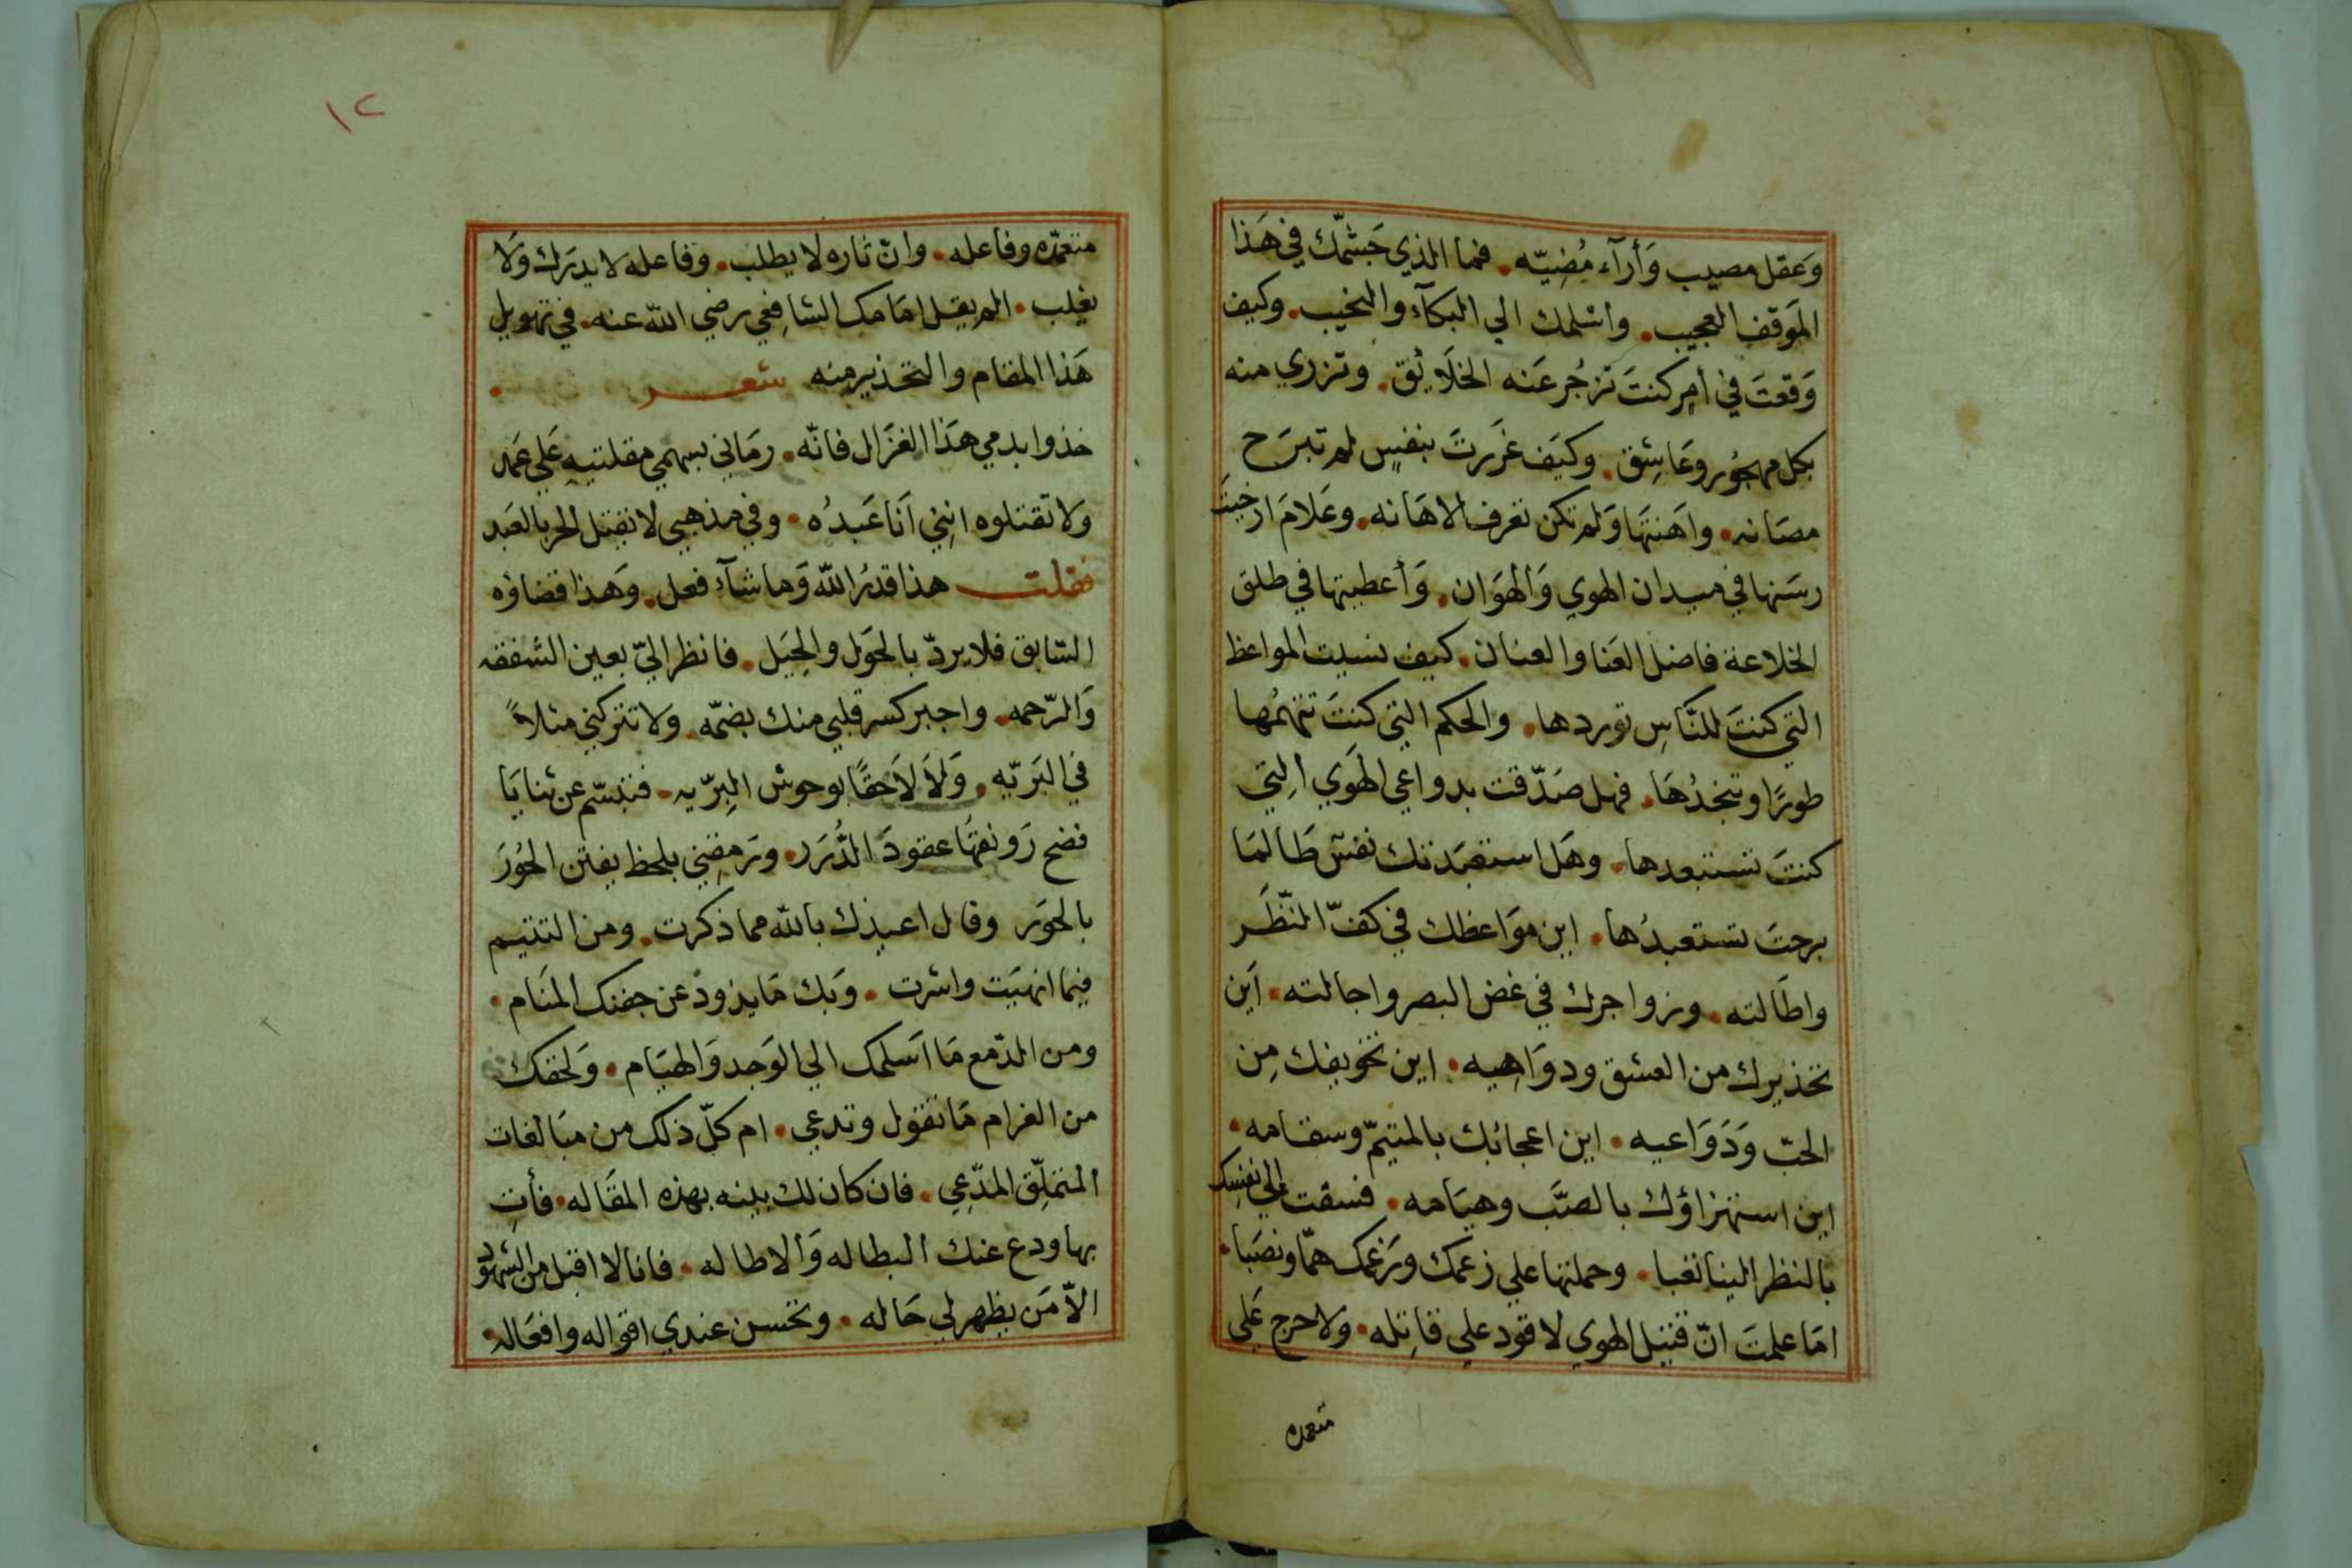 وَعقل مصيب وَأرآء مُضِيّه. فما الذي جَشّمك في هَذا
المَوقف العجيب. واسْلمك الي البكآء والنحيب. وكيف
وَقعتَ في أمرٍ كنتَ تزجُر عَنه الخلَائق. وتزري منه
بكل مهجُور وعَاشِق. وكيَف غرَرتَ بنفسٍ لم تبرَح
مصَانه. واهَنتَها وَلم تكن تعرف الاهَانه. وعَلامَ ارخيتَ
رسَنها في ميدان الهوي وَالهوَان. وَأعطيتها في طلق
الخلاعة فاضل العَنا والعنان. كيف نسيت المواعظ
التي كنتَ للنَّاسِ توردها. والحكم التي كنتَ تتهمُها
طورًا وتنجدُهَا. فهل صَدّقت بدواعي الهَوي التِي
كنتَ تستبعدها. وهَل استعبَدتك نفسٌ طَالمَا
برحتَ تستعبدُها. اين موَاعظك في كفّ النّظَر
واطَالته. وزواجرك في غض البصر واجالته. اَين
تحذيرك من العشق ودوَاهِيه. اين تخويفك مِن
الحبّ وَدَوَاعيه. اين اعجابُك بالمتيمّ وسقامه.
اين استهزاؤك بالصَّب وهيَامه. فسقت الي نفسِك
بالنظر الينا تعبا. وحملتها علي زعمك ورَغمك همّا ونصَبا.
امَا علمتَ انّ قتيل الهوي لا قود علي قاتِله. ولا حرج عَلي
متعمده
١٢
متعمّده وفاعله. وانّ ثاره لا يطلب. وفاعله لا يدرَك وَلا
يغلب. الم يقل امَامك الشافِعي رضي الله عنه. في تهويل
هَذا المقام والتحذير منه شعر
خذوا بدمي هَذا الغزَال فانّه. رمَاني بسهمي مقلتيه عَلي عَمد
وَلا تقتلوه انِني اَنا عَبدُه. وفي مذهبي لا يقتل الحر بالعَبد
فقلت هذا قدرُ الله وَما شآء فعل. وَهذا قضاؤه
السّابق فلا يردّ بالحوَل والحِيَل. فانظر اليّ بعين الشفقه
وَالرّحمه. واجبر كسر قلبي منك بضمّه. ولا تتركني مثلاً
في البَريّه. وَلَا لاَحقًا بوحوش البِرّيه. فتبسّم عن ثنايَا
فضح رَونقهُا عقودَ الدُّرَر. ورَمقنِي بلحظ يفتن الحُورَ
بالحوَر وقال اعيذك بالله مما ذكرت. ومن التتيم
فيما انهيَت واشرت. وَبك مَا يذود عن جفنك المنَام.
ومن الدّمع مَا اَسلمك الي الوَجد وَالهيَام. وَلحقك
من الغرام مَا تقول وتدعي. ام كلّ ذلك من مبَالغات
المتملِّق المدّعِي. فان كان لك بينه بهذه المقَاله. فأتِ
بها ودع عنك البطاله وَالاطاله. فانا لا اقبل من الشهود
الاّ مَن يظهر لي حَاله. وتحسن عندي اقواله وافعَاله.